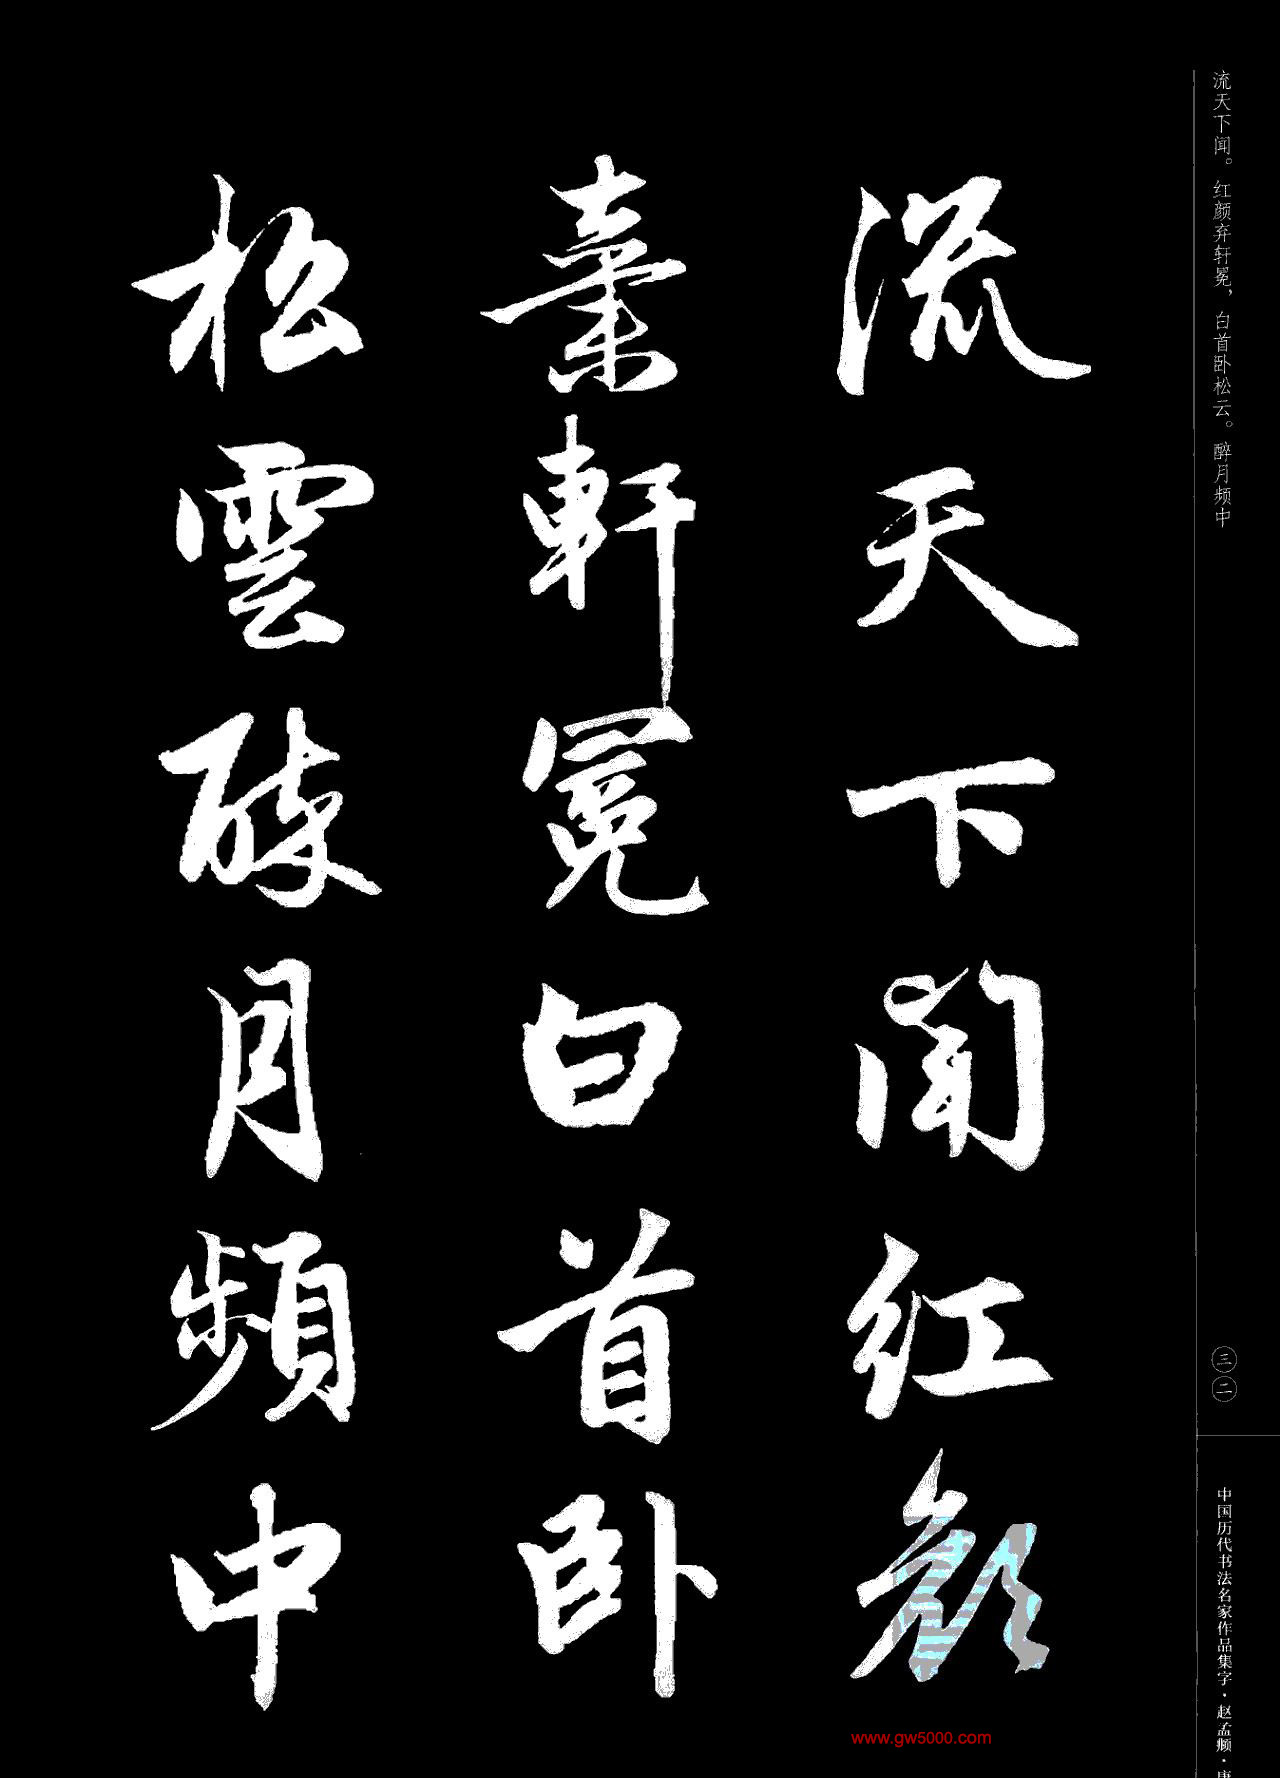 流天下闻。红颜弃轩冕，白首卧松云。醉月频中
流天下聞紅顏
棄軒冕白首卧
松雲醉月頻中
三二
中国历代书法名家作品集字·赵孟頫·唐
www.gw5000.com